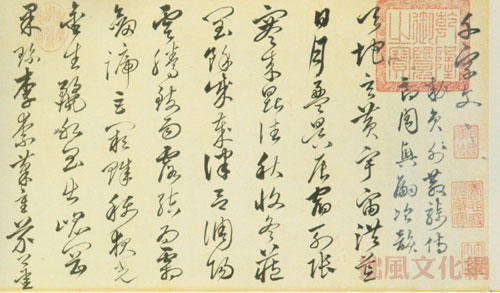 千字文
勅員外散騎侍
郎周興嗣次韻
天地玄黃宇宙洪荒
日月盈昃辰宿列張
寒來暑往秋收冬藏
閏餘成歲律呂調陽
雲騰致雨露結為霜
劍號巨闕珠稱夜光
金生麗水玉出崑岡
果珍李柰菜重芥薑
乾隆御覽之寶
拙風文化網